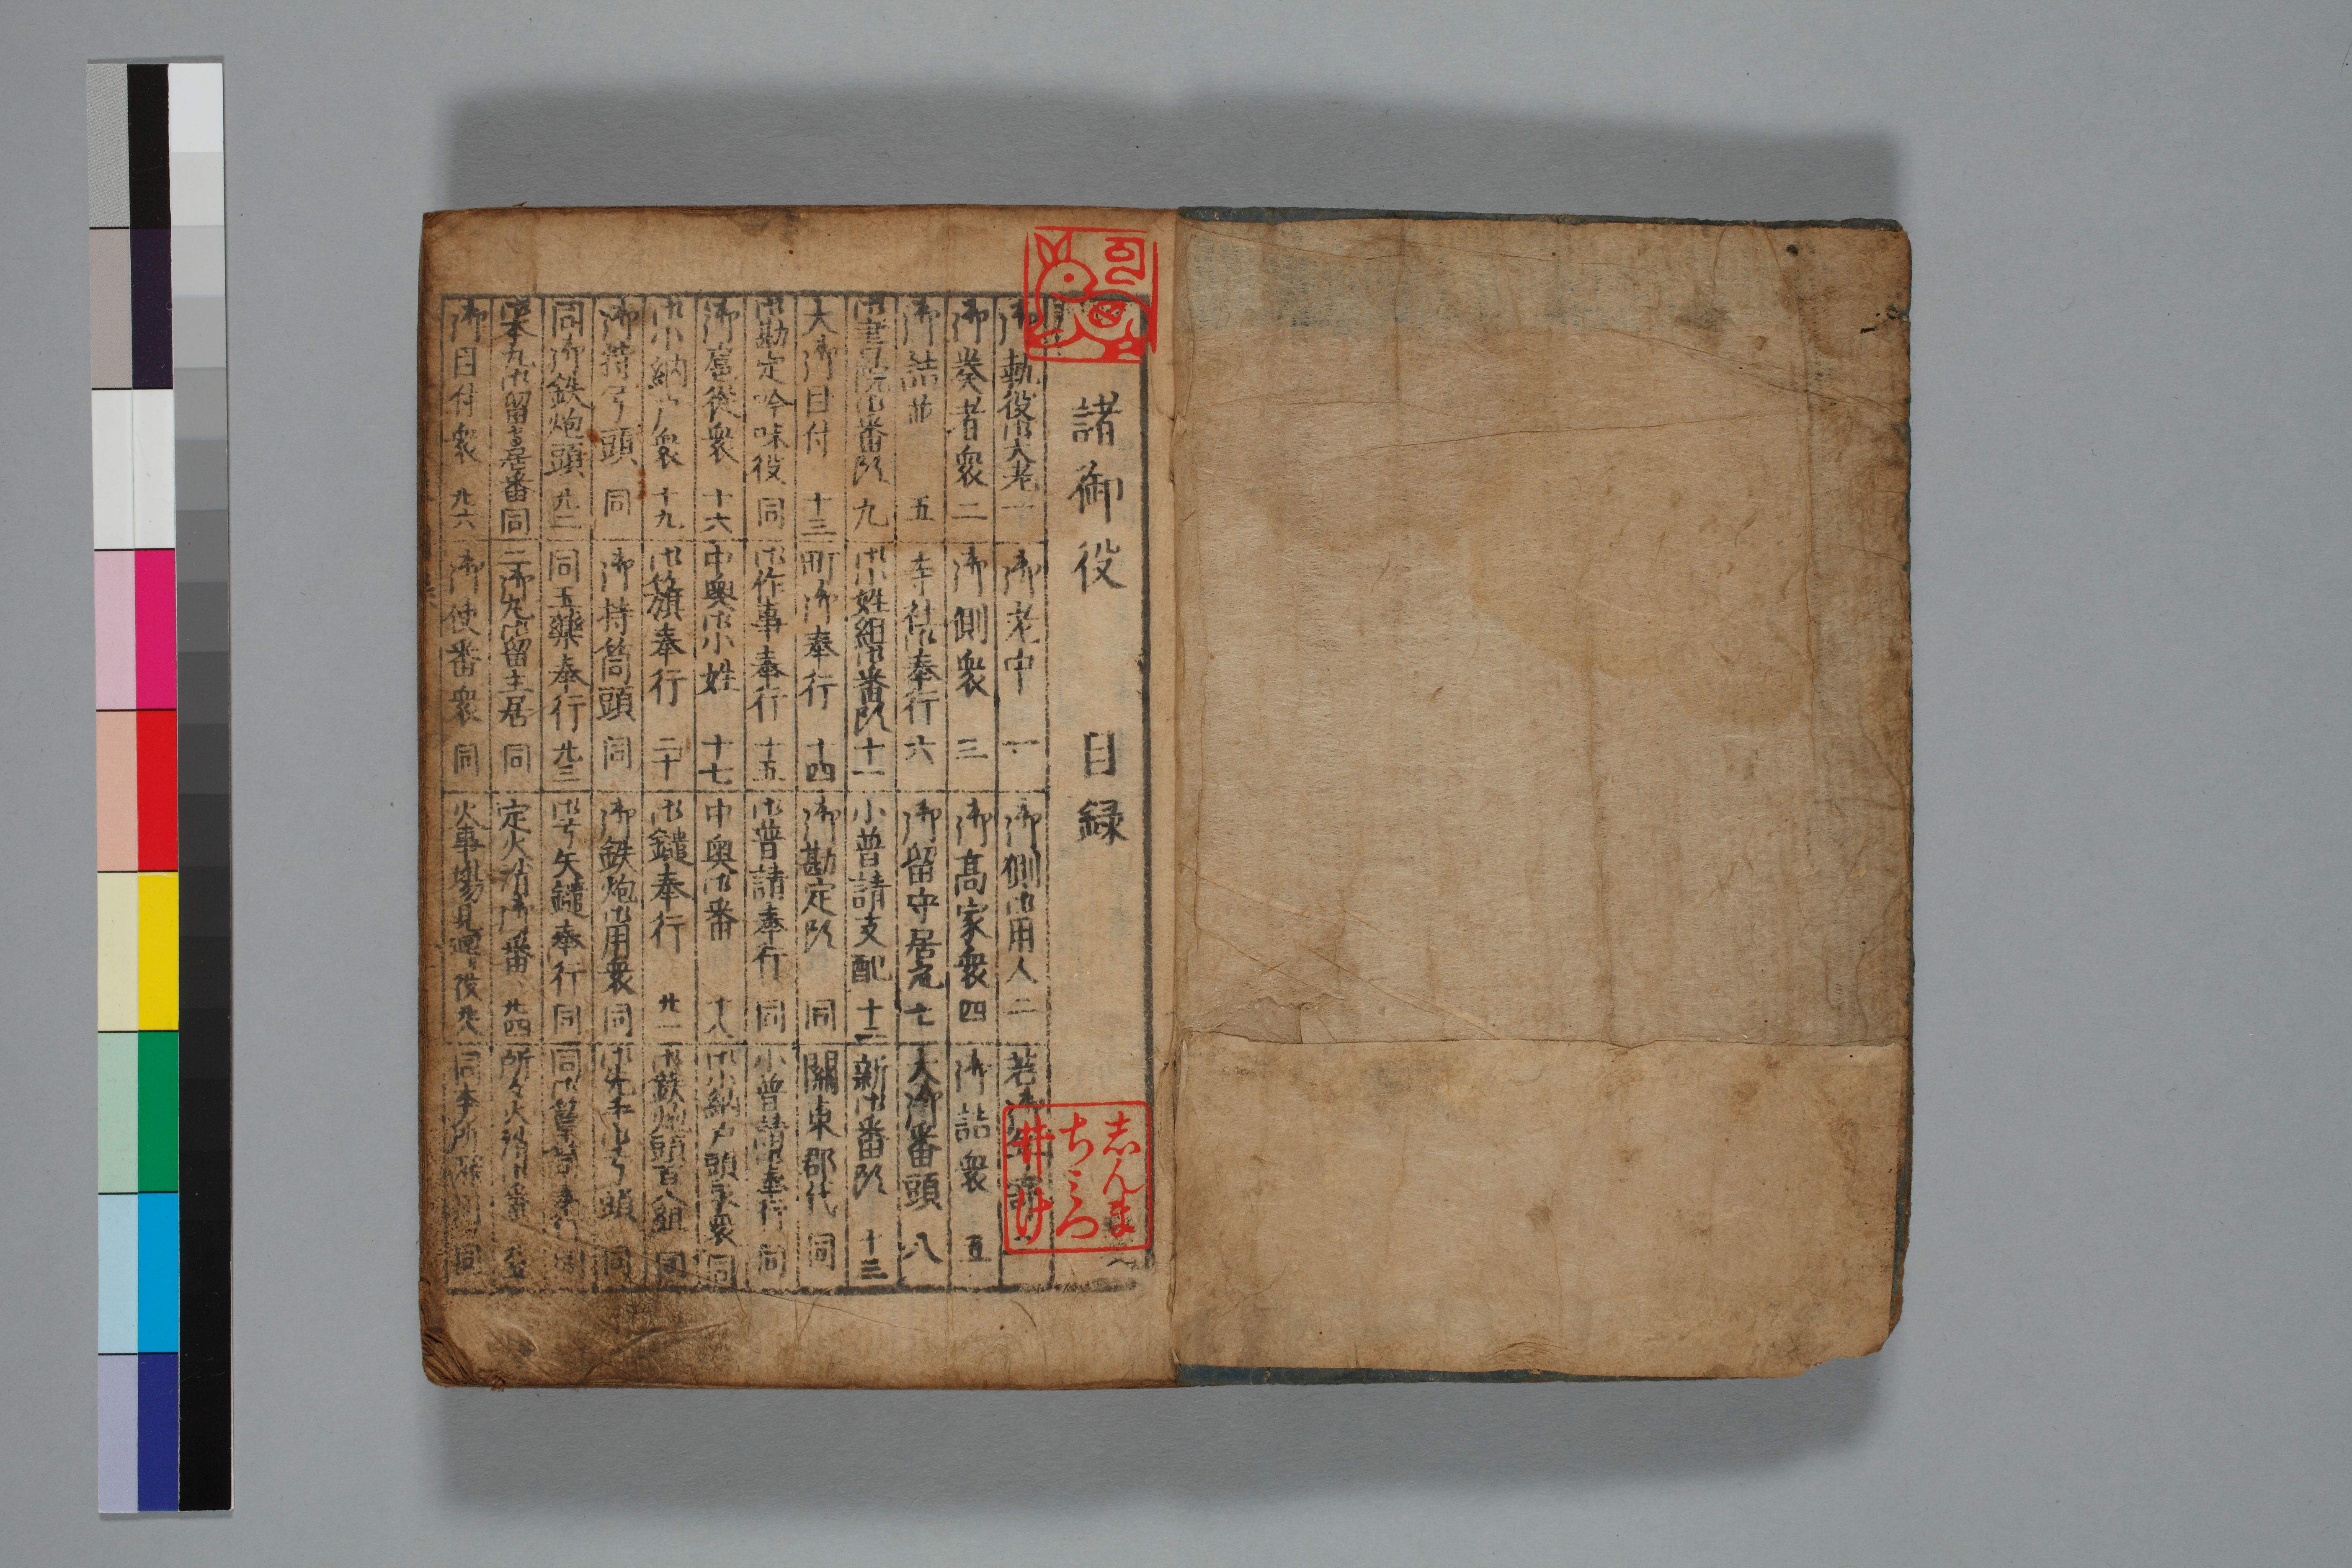 諸御役 目録
御執役御大老 一
御老中 一
御側御用人 二
若御年寄
御奏者衆 二
御側衆 三
御高家衆 四
御詰衆 五
御詰並 五
寺社御奉行 六
御留守居衆 七
大御番頭 八
御書院御番頭 九
御小姓組御番頭 十一
小普請支配 十二
新御番頭 十三
大御目付 十三
町御奉行 十四
御勘定頭 同
關東郡代 同
御勘定吟味役 同
御作事奉行 十五
御普請奉行 同
小普請御奉行 同
御扈從衆 十六
中奥御小姓 十七
中奥御番 十八
御小納戸頭衆 同
御小納戸衆 十九
御籏奉行 二十
御鑓奉行 廿一
御鉄炮頭百人組 同
御持弓頭 同
御持筒頭 同
御鉄炮御用衆 同
御先手御弓頭 同
同御鉄炮頭 廿二
同玉藥奉行 廿三
御弓矢鑓奉行 同
同御箪笥奉行 同
御本丸御留主居番 同
二御丸御留主居 同
定火消御番 廿四
所々火消御番
御目付衆 廿六
御使番衆 同
火事場見廻り役 廿八
同本所深川 同
志んま
ちころ
井け